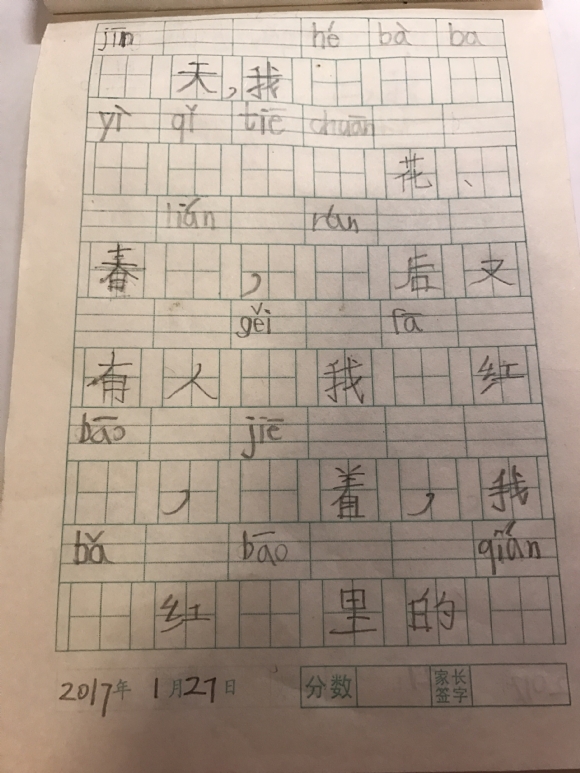 jīn hé bà ba
天,我
yì qǐ tiē chuān
花、
lián rán
春,后又
gěi fā
有人我红
bāo jiē
,着,我
bǎ bāo qián
红里的
2017年 1月27日 分数 家长签字